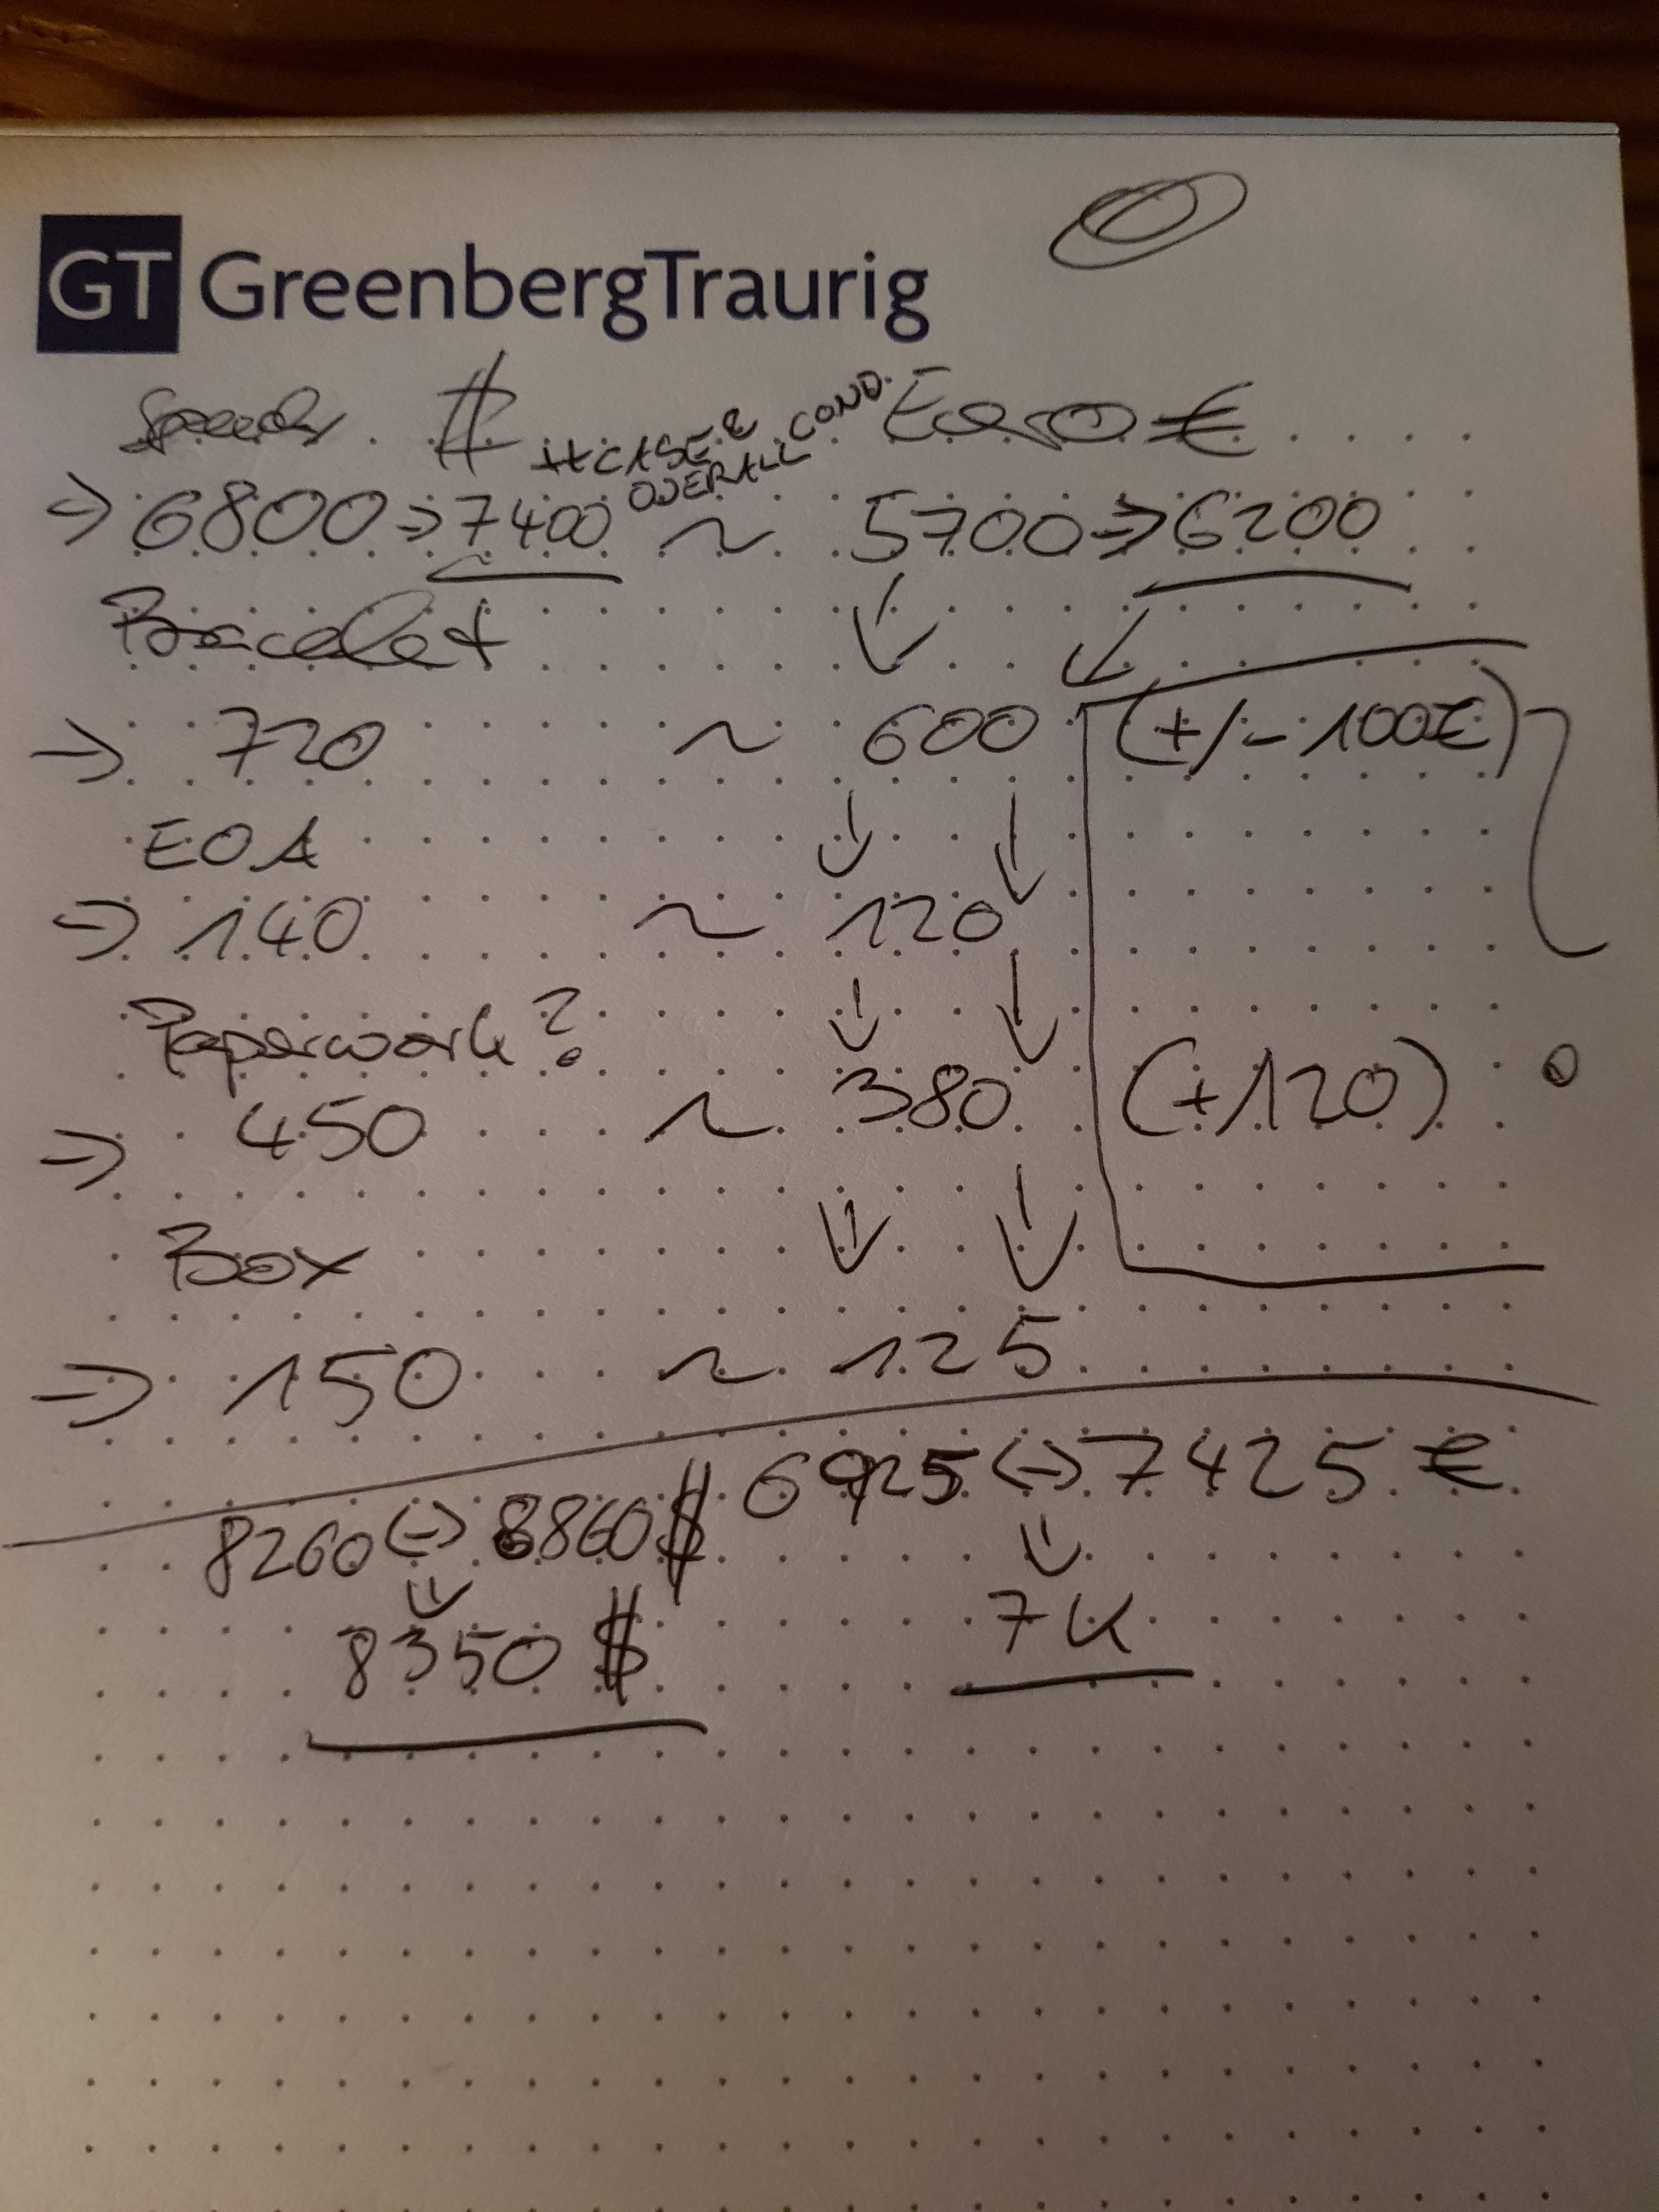 GT GreenbergTraurig
$ ++CASE & OVERALL COND. Euro €
→ 6800 → 7400 ~ 5700 → 6200
Bracelet
→ 720 ~ 600 (+/- 100€)
EOA
→ 140 ~ 120
Paperwork?
→ 450 ~ 380 (+120)
Box
→ 150 ~ 125
6925 <-> 7425 €
8260 <-> 8860 $
7K
8350 $